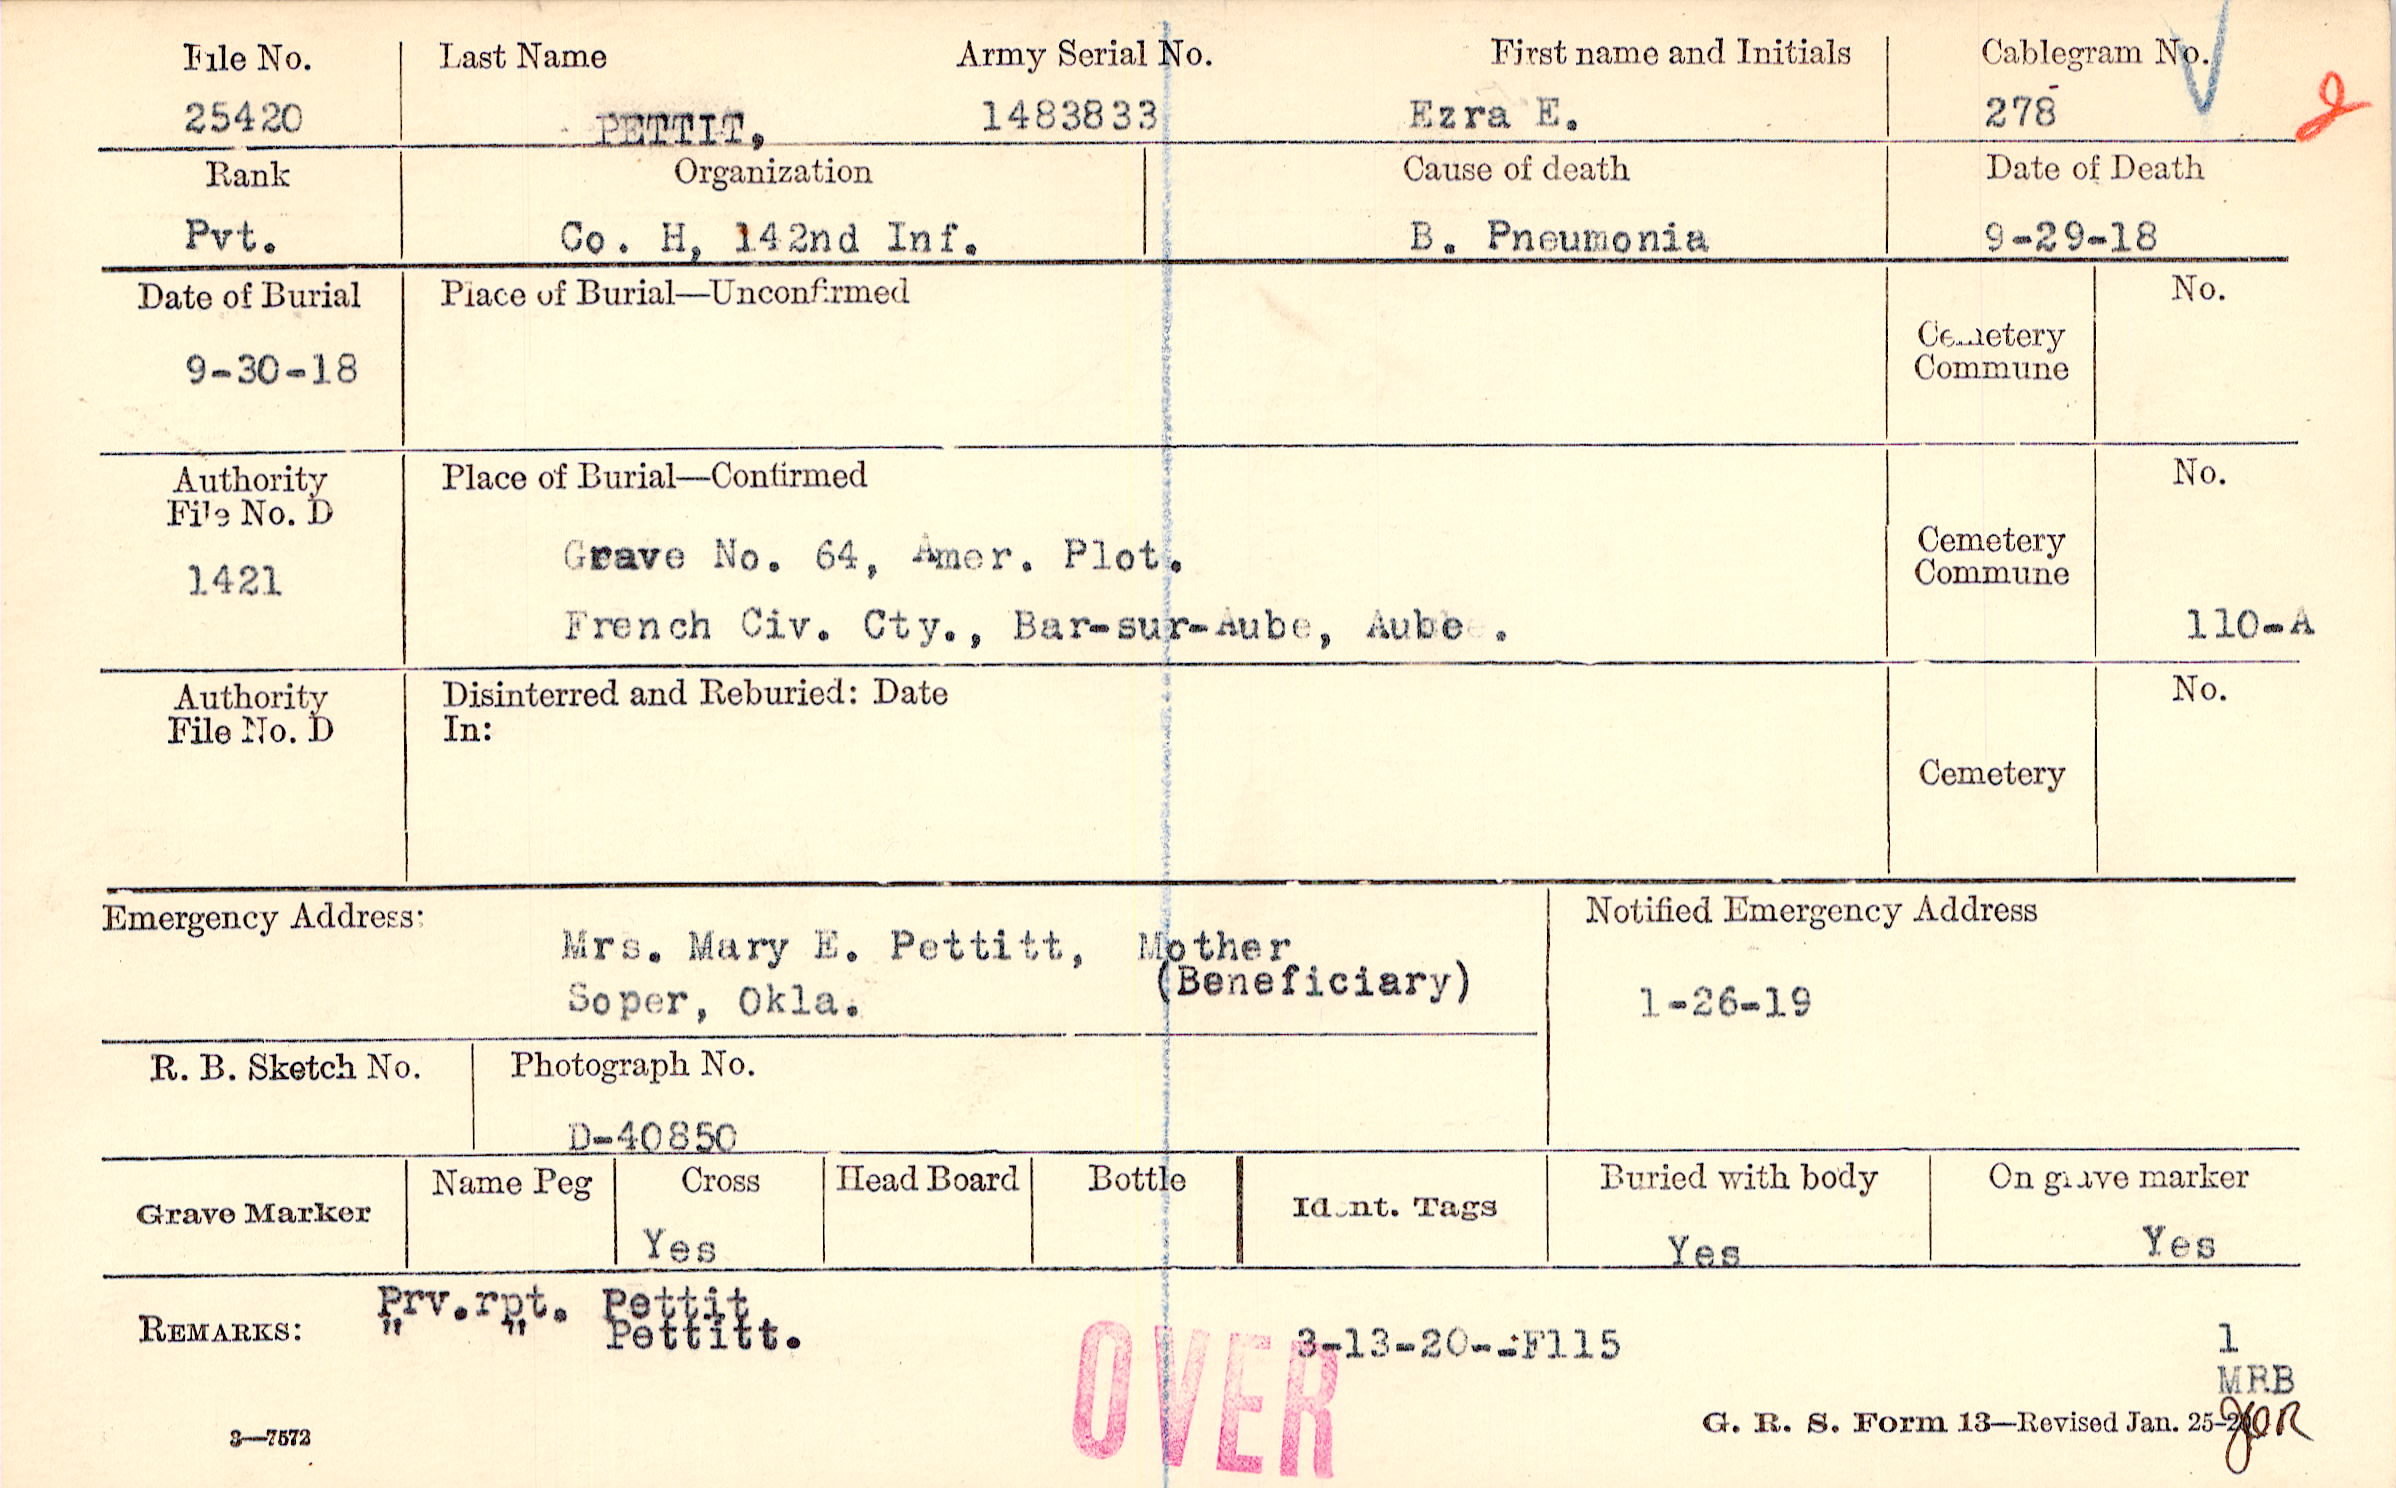 File No. Last Name Army Serial No. First name and Initials Cablegram No.
25420 PETTIT, 1483833 Ezra E. 278
Rank Organization Cause of death Date of Death
Pvt. Co. H, 142nd Inf. B. Pneumonia 9-29-18
Date of Burial Place of Burial—Unconfirmed No.
9-30-18
Cemetery
Commune
Authority Place of Burial—Confirmed No.
File No. D
1421
Grave No. 64, Amer. Plot.
French Civ. Cty., Bar-sur-Aube, Aube.
Cemetery
Commune
110-A
Authority Disinterred and Reburied: Date No.
File No. D In:
Cemetery
Emergency Address: Notified Emergency Address
Mrs. Mary E. Pettitt, Mother
(Beneficiary)
Soper, Okla.
1-26-19
R. B. Sketch No. Photograph No.
D-40850
Grave Marker Name Peg Cross Head Board Bottle Ident. Tags Buried with body On grave marker
Yes Yes Yes
REMARKS: Prv.rpt. Pettit
" " Pettitt.
3-13-20--F115
1
MRB
OVER
3—7572
G. R. S. Form 13—Revised Jan. 25-